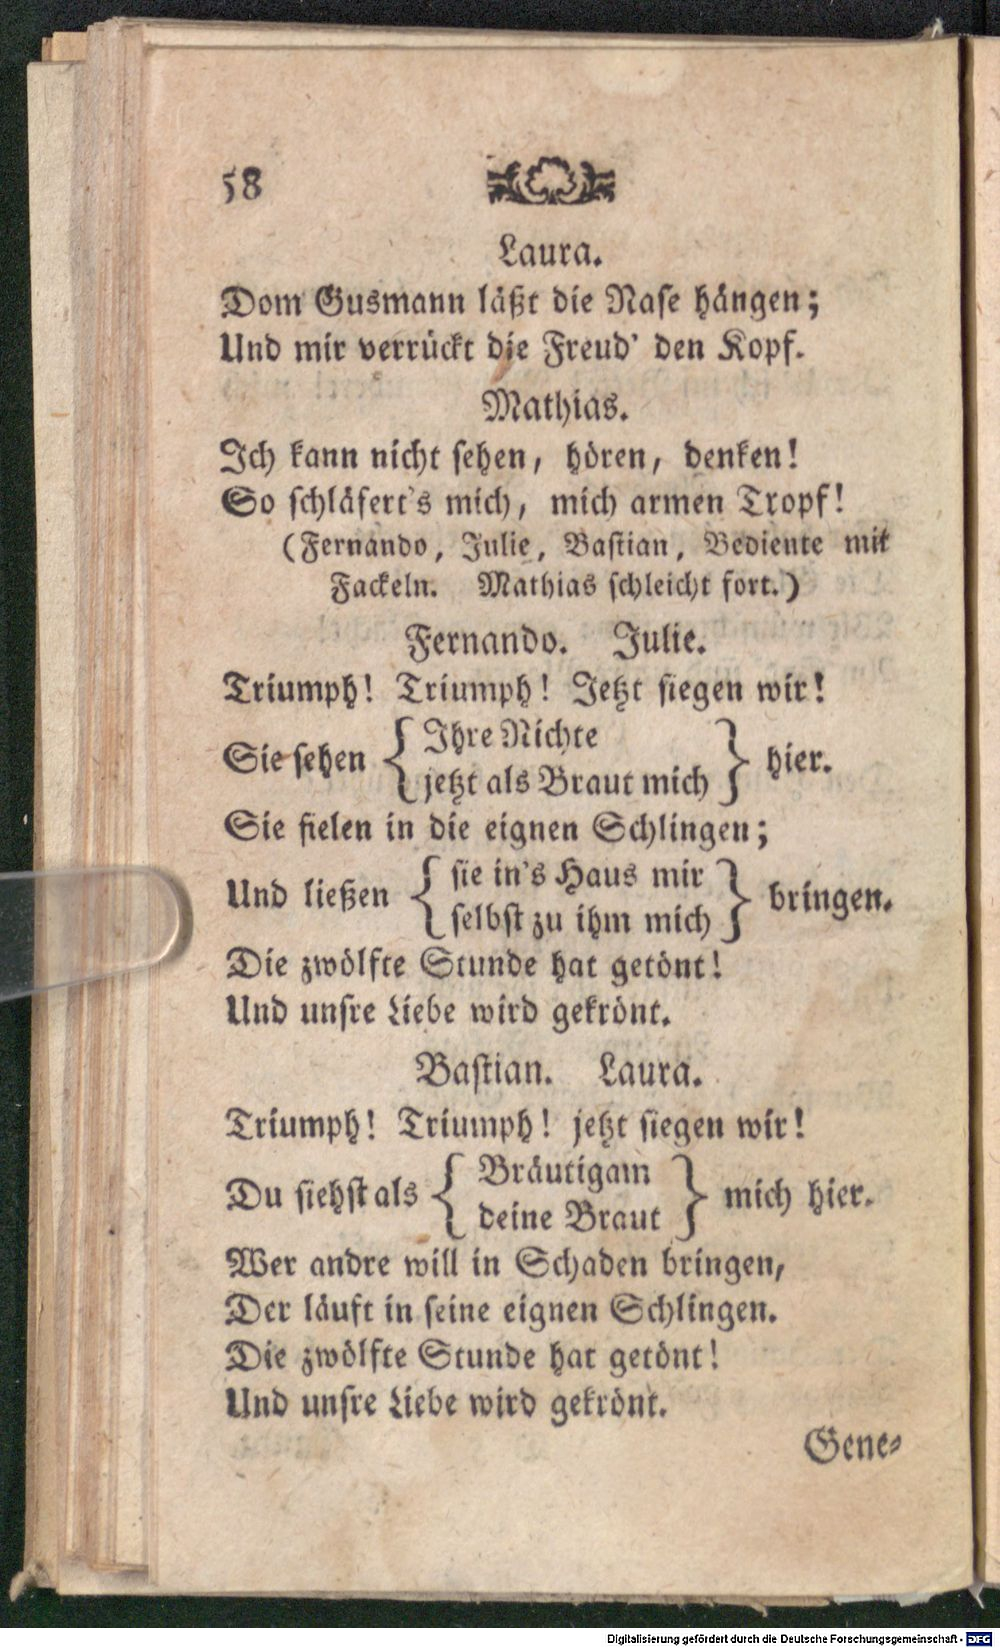 58
Laura.
Dom Gusmann läßt die Nase hängen;
Und mir verrückt die Freud' den Kopf.
Mathias.
Ich kann nicht sehen, hören, denken!
So schläfert's mich, mich armen Tropf!
(Fernando, Julie, Bastian, Bediente mit
Fackeln. Mathias schleicht fort.)
Fernando. Julie.
Triumph! Triumph! Jetzt siegen wir!
Sie sehen { Ihre Nichte
jetzt als Braut mich } hier.
Sie fielen in die eignen Schlingen;
Und ließen { sie in's Haus mir
selbst zu ihm mich } bringen.
Die zwölfte Stunde hat getönt!
Und unsre Liebe wird gekrönt.
Bastian. Laura.
Triumph! Triumph! jetzt siegen wir!
Du siehst als { Bräutigam
deine Braut } mich hier.
Wer andre will in Schaden bringen,
Der läuft in seine eignen Schlingen.
Die zwölfte Stunde hat getönt!
Und unsre Liebe wird gekrönt.
Gene-
Digitalisierung gefördert durch die Deutsche Forschungsgemeinschaft - DFG